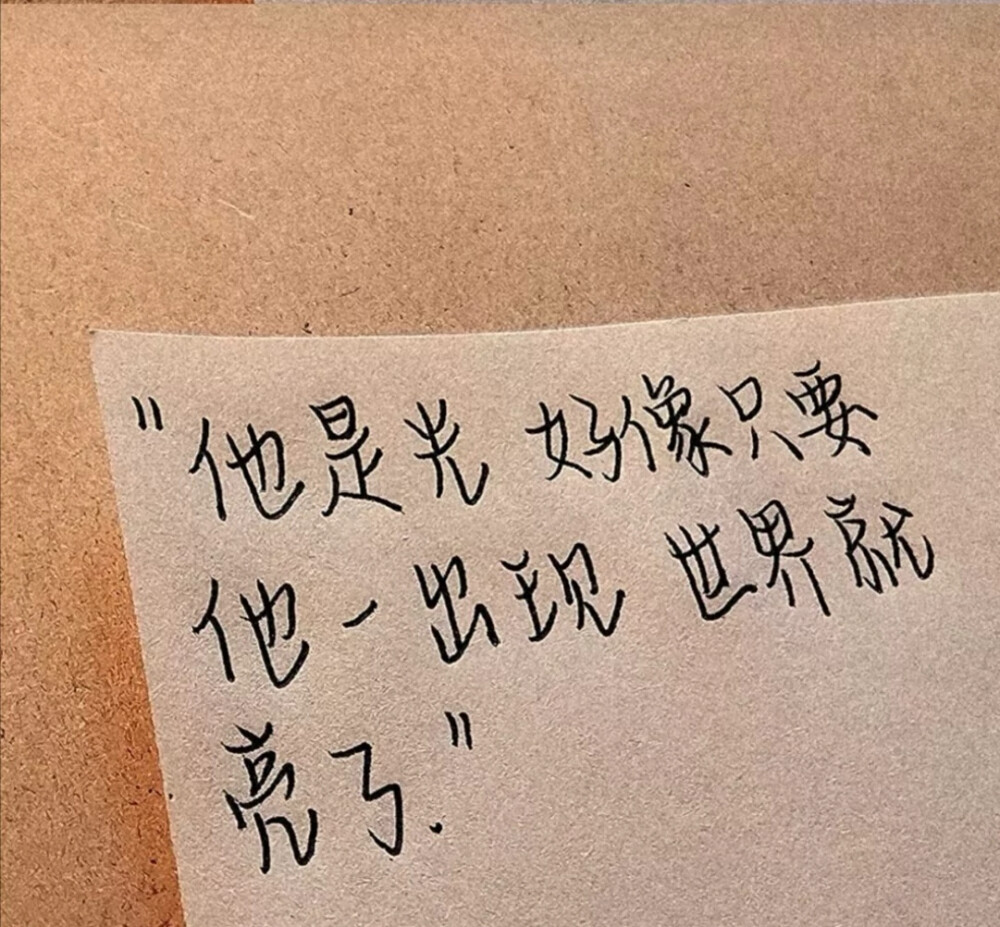 "他是光 好像只要
他一出现 世界就
亮了."